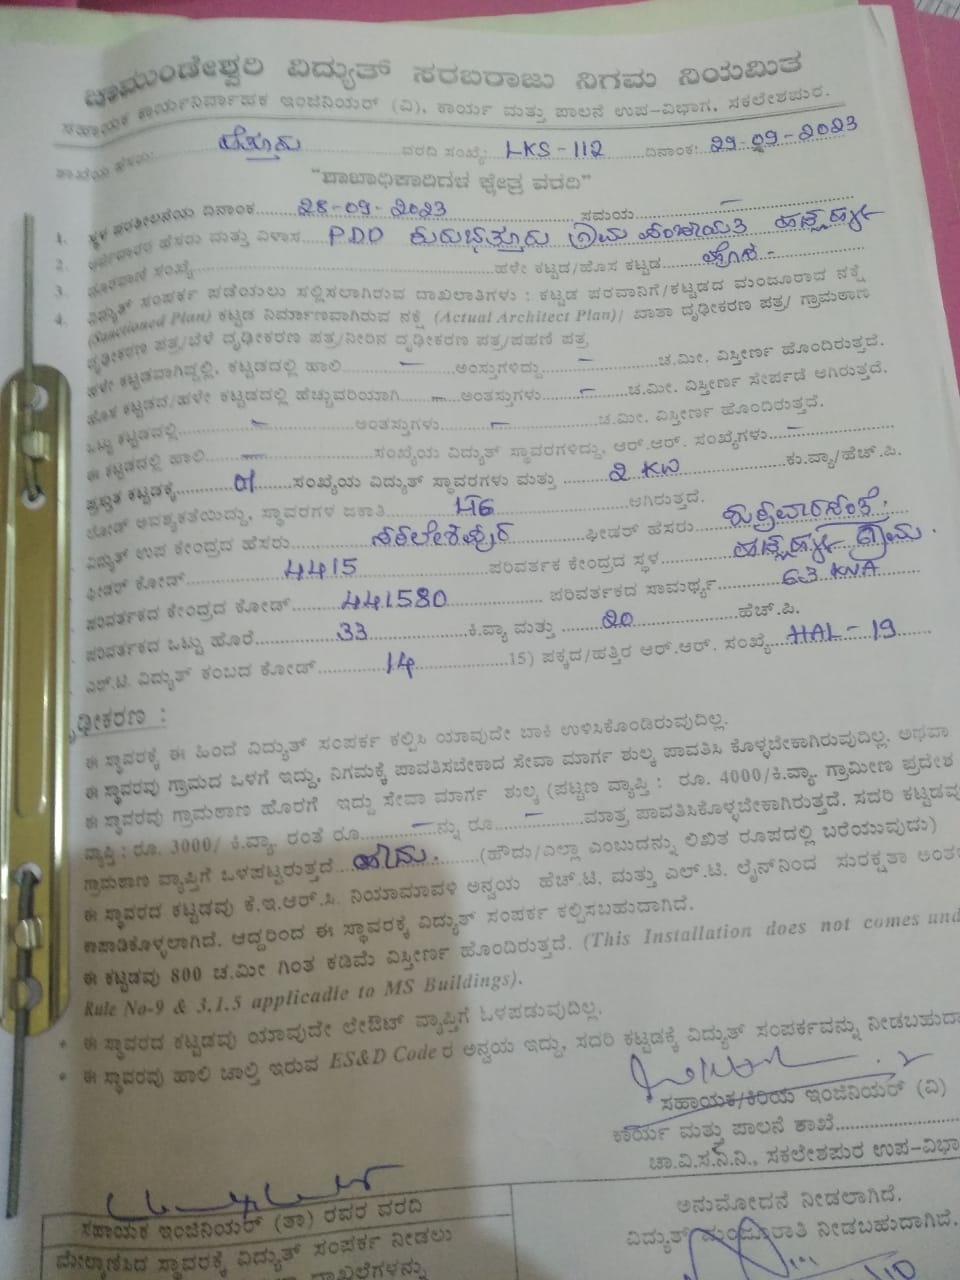 ಚಾಮುಂಡೇಶ್ವರಿ ವಿದ್ಯುತ್ ಸರಬರಾಜು ನಿಗಮ ನಿಯಮಿತ
ಸಹಾಯಕ ಕಾರ್ಯನಿರ್ವಾಹಕ ಇಂಜಿನಿಯರ್ (ವಿ), ಕಾರ್ಯ ಮತ್ತು ಪಾಲನೆ ಉಪ-ವಿಭಾಗ, ಸಕಲೇಶಪುರ.
ಶಾಖೆಯ ಹೆಸರು: ಹೆತ್ತೂರು ವರದಿ ಸಂಖ್ಯೆ: LKS-112 ದಿನಾಂಕ: 29-09-2023
"ಶಾಖಾಧಿಕಾರಿಗಳ ಕ್ಷೇತ್ರ ವರದಿ"
1. ಸ್ಥಳ ಪರಿಶೀಲನೆಯ ದಿನಾಂಕ 28-09-2023 ಸಮಯ –
2. ಅರ್ಜಿದಾರರ ಹೆಸರು ಮತ್ತು ವಿಳಾಸ PDO ಗ್ರಾಮ ಪಂಚಾಯತಿ
3. ದೂರವಾಣಿ ಸಂಖ್ಯೆ ಹಳೇ ಕಟ್ಟಡ/ಹೊಸ ಕಟ್ಟಡ ಹೊಸ -
4. ವಿದ್ಯುತ್ ಸಂಪರ್ಕ ಪಡೆಯಲು ಸಲ್ಲಿಸಲಾಗಿರುವ ದಾಖಲಾತಿಗಳು : ಕಟ್ಟಡ ಪರವಾನಿಗೆ/ಕಟ್ಟಡದ ಮಂಜೂರಾದ ನಕ್ಷೆ
(Sanctioned Plan) ಕಟ್ಟಡ ನಿರ್ಮಾಣವಾಗಿರುವ ನಕ್ಷೆ (Actual Architect Plan)/ ಖಾತಾ ದೃಢೀಕರಣ ಪತ್ರ/ ಗ್ರಾಮಠಾಣ
ದೃಢೀಕರಣ ಪತ್ರ/ಬೆಳೆ ದೃಢೀಕರಣ ಪತ್ರ/ನೀರಿನ ದೃಢೀಕರಣ ಪತ್ರ/ಪಹಣಿ ಪತ್ರ
ಹಳೇ ಕಟ್ಟಡವಾಗಿದ್ದಲ್ಲಿ, ಕಟ್ಟಡದಲ್ಲಿ ಹಾಲಿ – ಅಂಸ್ತುಗಳಿದ್ದು – ಚ.ಮೀ. ವಿಸ್ತೀರ್ಣ ಹೊಂದಿರುತ್ತದೆ.
ಹೊಸ ಕಟ್ಟಡದ/ಹಳೇ ಕಟ್ಟಡದಲ್ಲಿ ಹೆಚ್ಚುವರಿಯಾಗಿ – ಅಂತಸ್ತುಗಳು – ಚ.ಮೀ. ವಿಸ್ತೀರ್ಣ ಸೇರ್ಪಡೆ ಆಗಿರುತ್ತದೆ.
ಒಟ್ಟು ಕಟ್ಟಡದಲ್ಲಿ – ಅಂತಸ್ತುಗಳು – ಚ.ಮೀ. ವಿಸ್ತೀರ್ಣ ಹೊಂದಿರುತ್ತದೆ.
ಈ ಕಟ್ಟಡದಲ್ಲಿ ಹಾಲಿ – ಸಂಖ್ಯೆಯ ವಿದ್ಯುತ್ ಸ್ಥಾವರಗಳಿದ್ದು, ಆರ್.ಆರ್. ಸಂಖ್ಯೆಗಳು –
ಪ್ರಸ್ತುತ ಕಟ್ಟಡಕ್ಕೆ 01 ಸಂಖ್ಯೆಯ ವಿದ್ಯುತ್ ಸ್ಥಾವರಗಳು ಮತ್ತು 2 KW ಕು.ವ್ಯಾ/ಹೆಚ್.ಪಿ.
ಲೋಡ್ ಅವಶ್ಯಕತೆಯಿದ್ದು, ಸ್ಥಾವರಗಳ ಜಕಾತಿ ಆಗಿರುತ್ತದೆ.
ವಿದ್ಯುತ್ ಉಪ ಕೇಂದ್ರದ ಹೆಸರು ಸಕಲೇಶಪುರ ಫೀಡರ್ ಹೆಸರು ಶುಕ್ರವಾರಸಂತೆ.
ಫೀಡರ್ ಕೋಡ್ 4415 ಪರಿವರ್ತಕ ಕೇಂದ್ರದ ಸ್ಥಳ ಗ್ರಾಮ.
ಪರಿವರ್ತಕದ ಕೇಂದ್ರದ ಕೋಡ್ 441580 ಪರಿವರ್ತಕದ ಸಾಮರ್ಥ್ಯ 63 KVA
ಪರಿವರ್ತಕದ ಒಟ್ಟು ಹೊರೆ 33 ಕಿ.ವ್ಯಾ ಮತ್ತು 20 ಹೆಚ್.ಪಿ.
ಎಲ್.ಟಿ. ವಿದ್ಯುತ್ ಕಂಬದ ಕೋಡ್ 14 15) ಪಕ್ಕದ/ಹತ್ತಿರ ಆರ್.ಆರ್. ಸಂಖ್ಯೆ HAL-19
ದೃಢೀಕರಣ :
ಈ ಸ್ಥಾವರಕ್ಕೆ ಈ ಹಿಂದೆ ವಿದ್ಯುತ್ ಸಂಪರ್ಕ ಕಲ್ಪಿಸಿ ಯಾವುದೇ ಬಾಕಿ ಉಳಿಸಿಕೊಂಡಿರುವುದಿಲ್ಲ.
ಈ ಸ್ಥಾವರವು ಗ್ರಾಮದ ಒಳಗೆ ಇದ್ದು, ನಿಗಮಕ್ಕೆ ಪಾವತಿಸಬೇಕಾದ ಸೇವಾ ಮಾರ್ಗ ಶುಲ್ಕ ಪಾವತಿಸಿ ಕೊಳ್ಳಬೇಕಾಗಿರುವುದಿಲ್ಲ. ಅಥವಾ
ಈ ಸ್ಥಾವರವು ಗ್ರಾಮಠಾಣ ಹೊರಗೆ ಇದ್ದು ಸೇವಾ ಮಾರ್ಗ ಶುಲ್ಕ (ಪಟ್ಟಣ ವ್ಯಾಪ್ತಿ : ರೂ. 4000/ಕಿ.ವ್ಯಾ. ಗ್ರಾಮೀಣ ಪ್ರದೇಶ
ವ್ಯಾಪ್ತಿ : ರೂ. 3000/ ಕಿ.ವ್ಯಾ. ರಂತೆ ರೂ – ನ್ನು ರೂ – ಮಾತ್ರ ಪಾವತಿಸಿಕೊಳ್ಳಬೇಕಾಗಿರುತ್ತದೆ. ಸದರಿ ಕಟ್ಟಡವು
ಗ್ರಾಮಠಾಣ ವ್ಯಾಪ್ತಿಗೆ ಒಳಪಟ್ಟಿರುತ್ತದೆ ಹೌದು. (ಹೌದು/ಎಲ್ಲಾ ಎಂಬುದನ್ನು ಲಿಖಿತ ರೂಪದಲ್ಲಿ ಬರೆಯುವುದು)
ಈ ಸ್ಥಾವರದ ಕಟ್ಟಡವು ಕೆ.ಇ.ಆರ್.ಸಿ. ನಿಯಾಮಾವಳಿ ಅನ್ವಯ ಹೆಚ್.ಟಿ. ಮತ್ತು ಎಲ್.ಟಿ. ಲೈನ್‌ನಿಂದ ಸುರಕ್ಷತಾ ಅಂತರ
ಕಾಪಾಡಿಕೊಳ್ಳಲಾಗಿದೆ. ಆದ್ದರಿಂದ ಈ ಸ್ಥಾವರಕ್ಕೆ ವಿದ್ಯುತ್ ಸಂಪರ್ಕ ಕಲ್ಪಿಸಬಹುದಾಗಿದೆ.
ಈ ಕಟ್ಟಡವು 800 ಚ.ಮೀ ಗಿಂತ ಕಡಿಮೆ ವಿಸ್ತೀರ್ಣ ಹೊಂದಿರುತ್ತದೆ. (This Installation does not comes und
Rule No-9 & 3.1.5 applicadle to MS Buildings).
• ಈ ಸ್ಥಾವರದ ಕಟ್ಟಡವು ಯಾವುದೇ ಲೇಔಟ್ ವ್ಯಾಪ್ತಿಗೆ ಓಳಪಡುವುದಿಲ್ಲ.
• ಈ ಸ್ಥಾವರವು ಹಾಲಿ ಚಾಲ್ತಿ ಇರುವ ES&D Code ರ ಅನ್ವಯ ಇದ್ದು, ಸದರಿ ಕಟ್ಟಡಕ್ಕೆ ವಿದ್ಯುತ್ ಸಂಪರ್ಕವನ್ನು ನೀಡಬಹುದಾ
ಸಹಾಯಕ/ಕಿರಿಯ ಇಂಜಿನಿಯರ್ (ವಿ)
ಕಾರ್ಯ ಮತ್ತು ಪಾಲನೆ ಶಾಖೆ
ಚಾ.ವಿ.ಸ.ನಿ.ನಿ., ಸಕಲೇಶಪುರ ಉಪ-ವಿಭಾ
ಸಹಾಯಕ ಇಂಜಿನಿಯರ್ (ತಾ) ರವರ ವರದಿ
ಮೇಲ್ಕಾಣಿಸಿದ ಸ್ಥಾವರಕ್ಕೆ ವಿದ್ಯುತ್ ಸಂಪರ್ಕ ನೀಡಲು
ದಾಖಲೆಗಳನ್ನು
ಅನುಮೋದನೆ ನೀಡಲಾಗಿದೆ.
ವಿದ್ಯುತ್ ಮಂಜೂರಾತಿ ನೀಡಬಹುದಾಗಿದೆ.